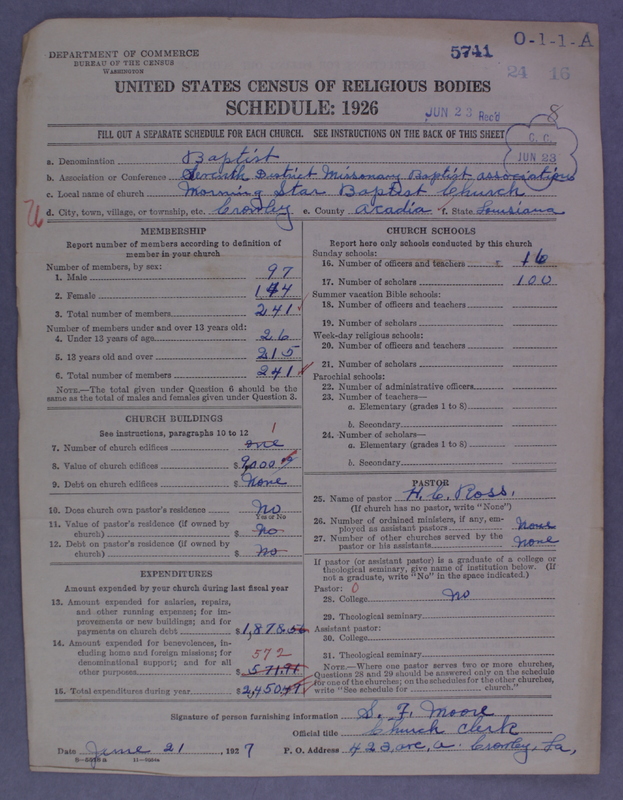 5741
O-1-1-A
DEPARTMENT OF COMMERCE
BUREAU OF THE CENSUS
WASHINGTON
24 16
UNITED STATES CENSUS OF RELIGIOUS BODIES
SCHEDULE: 1926
JUN 23 Rec'd
8
FILL OUT A SEPARATE SCHEDULE FOR EACH CHURCH. SEE INSTRUCTIONS ON THE BACK OF THIS SHEET
C. C.
JUN 23
a. Denomination Baptist
b. Association or Conference Seventh District Missionary Baptist association
c. Local name of church Morning Star Baptist Church
d. City, town, village, or township, etc. Crowley e. County Acadia f. State Louisiana
MEMBERSHIP
Report number of members according to definition of
member in your church
Number of members, by sex:
1. Male 97
2. Female 144
3. Total number of members 241
Number of members under and over 13 years old:
4. Under 13 years of age 26
5. 13 years old and over 215
6. Total number of members 241
NOTE.—The total given under Question 6 should be the
same as the total of males and females given under Question 3.
CHURCH BUILDINGS
See instructions, paragraphs 10 to 12
1
7. Number of church edifices one
8. Value of church edifices $9,000
9. Debt on church edifices $None
10. Does church own pastor's residence No
Yes or No
11. Value of pastor's residence (if owned by
church) $ No
12. Debt on pastor's residence (if owned by
church) $ No
EXPENDITURES
Amount expended by your church during last fiscal year
13. Amount expended for salaries, repairs,
and other running expenses; for im-
provements or new buildings; and for
payments on church debt $1,878.56
14. Amount expended for benevolences, in-
cluding home and foreign missions; for
denominational support; and for all
572
other purposes $571.91
15. Total expenditures during year $2,450.47
CHURCH SCHOOLS
Report here only schools conducted by this church
Sunday schools:
16. Number of officers and teachers 16
17. Number of scholars 100
Summer vacation Bible schools:
18. Number of officers and teachers
19. Number of scholars
Week-day religious schools:
20. Number of officers and teachers
21. Number of scholars
Parochial schools:
22. Number of administrative officers
23. Number of teachers—
a. Elementary (grades 1 to 8)
b. Secondary
24. Number of scholars—
a. Elementary (grades 1 to 8)
b. Secondary
PASTOR
25. Name of pastor H. C. Ross.
(If church has no pastor, write "None")
26. Number of ordained ministers, if any, em-
ployed as assistant pastors None
27. Number of other churches served by the
pastor or his assistants None
If pastor (or assistant pastor) is a graduate of a college or
theological seminary, give name of institution below. (If
not a graduate, write "No" in the space indicated.)
Pastor: 0
28. College No
29. Theological seminary
Assistant pastor:
30. College
31. Theological seminary
NOTE.—Where one pastor serves two or more churches,
Questions 28 and 29 should be answered only on the schedule
for one of the churches; on the schedules for the other churches,
write "See schedule for church."
Signature of person furnishing information S. F. Moore
Official title Church Clerk
Date June 21, 1927 P. O. Address 423, ave, a. Crowley, La,